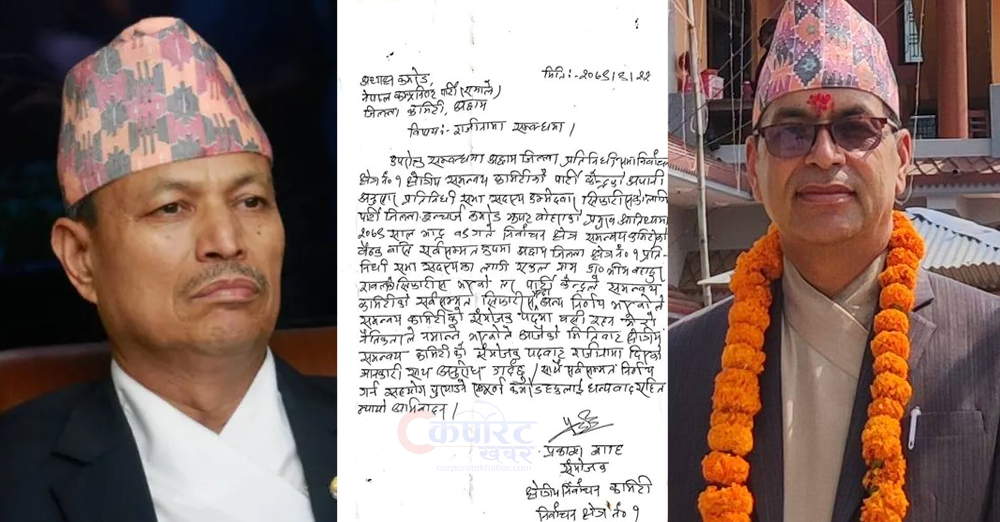 मिति:- २०७९।६।२२
अध्यक्ष कमरेड,
नेपाल कम्युनिष्ट पार्टी (एमाले)
जिल्ला कमिटी, अछाम
विषय:- राजीनामा सम्बन्धमा ।
उपरोक्त सम्बन्धमा अछाम जिल्ला प्रतिनिधी सभा निर्वाचन
क्षेत्र नं १ क्षेत्रीय समन्वय कमिटीको पार्टी केन्द्रको
प्रतिनिधी सभा सदस्य उम्मेदवार सिफारिसका लागि
पार्टी जिल्ला इन्चार्ज कमरेड वोहराको प्रमुख आतिथ्यमा
२०७९ साल भाद्र गते निर्वाचन क्षेत्र समन्वय कमिटीको
बैठक वसि सर्वसम्मत रुपमा अछाम जिल्ला क्षेत्र नं० १ प्रति-
निधी सभा सदस्यका लागी एकल नाम भीम बहादुर
रावलको सिफारिस भएको तर पार्टी केन्द्रले समन्वय
कमिटीको सर्वसम्मत सिफारिस अन्य निर्णय भएकोले
समन्वय कमिटीको संयोजक पदमा बसी रहन
नैतिकताले नमान्ने भएकोले आजैको मितिबाट क्षेत्रीय
समन्वय कमिटी को संयोजक पदबाट राजीनामा दिएको
जानकारी साथ अनुरोध गर्दछु । साथै सर्वसम्मत निर्णय
गर्न सहयोग सम्पूर्ण कमरेडहरुलाई धन्यवाद सहित
अभिवादन ।
कर्पोरेट
खबर
corporatekhabar.com
प्रकाश शाह
संयोजक
क्षेत्रीय निर्वाचन कमिटी
निर्वाचन क्षेत्र नं० १